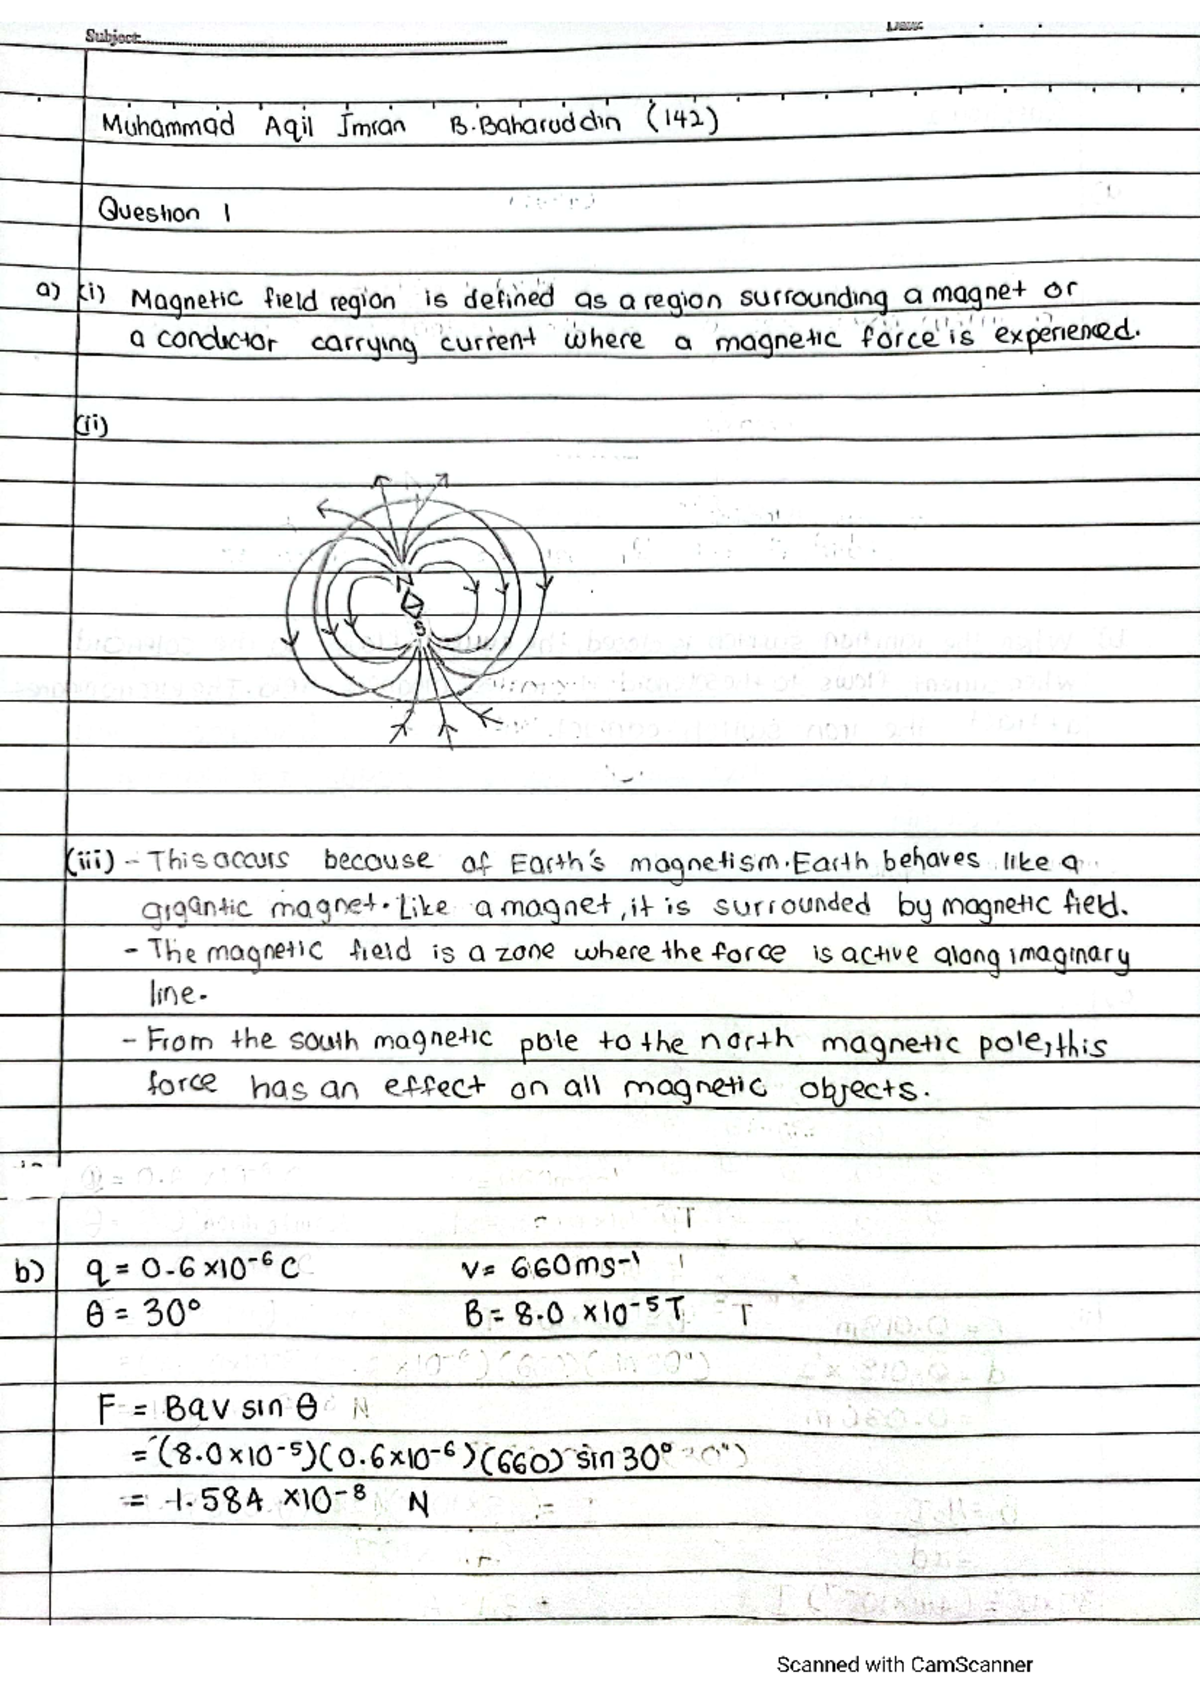 Subject:
Date
Muhammad Aqil Imran B.Baharuddin (142)
Question 1
a) (i) Magnetic field region is defined as a region surrounding a magnet or
a conductor carrying current where a magnetic force is experienced.
(ii)
N
S
(iii) - This occurs because of Earth's magnetism. Earth behaves like a
gigantic magnet. Like a magnet, it is surrounded by magnetic field.
- The magnetic field is a zone where the force is active along imaginary
line.
- From the south magnetic pole to the north magnetic pole, this
force has an effect on all magnetic objects.
b) q = 0.6 ×10⁻⁶ C v = 660ms⁻¹
θ = 30° B = 8.0 ×10⁻⁵ T
F = Bqv sin θ
= (8.0×10⁻⁵)(0.6×10⁻⁶)(660) sin 30°
= 1.584 ×10⁻⁸ N
Scanned with CamScanner